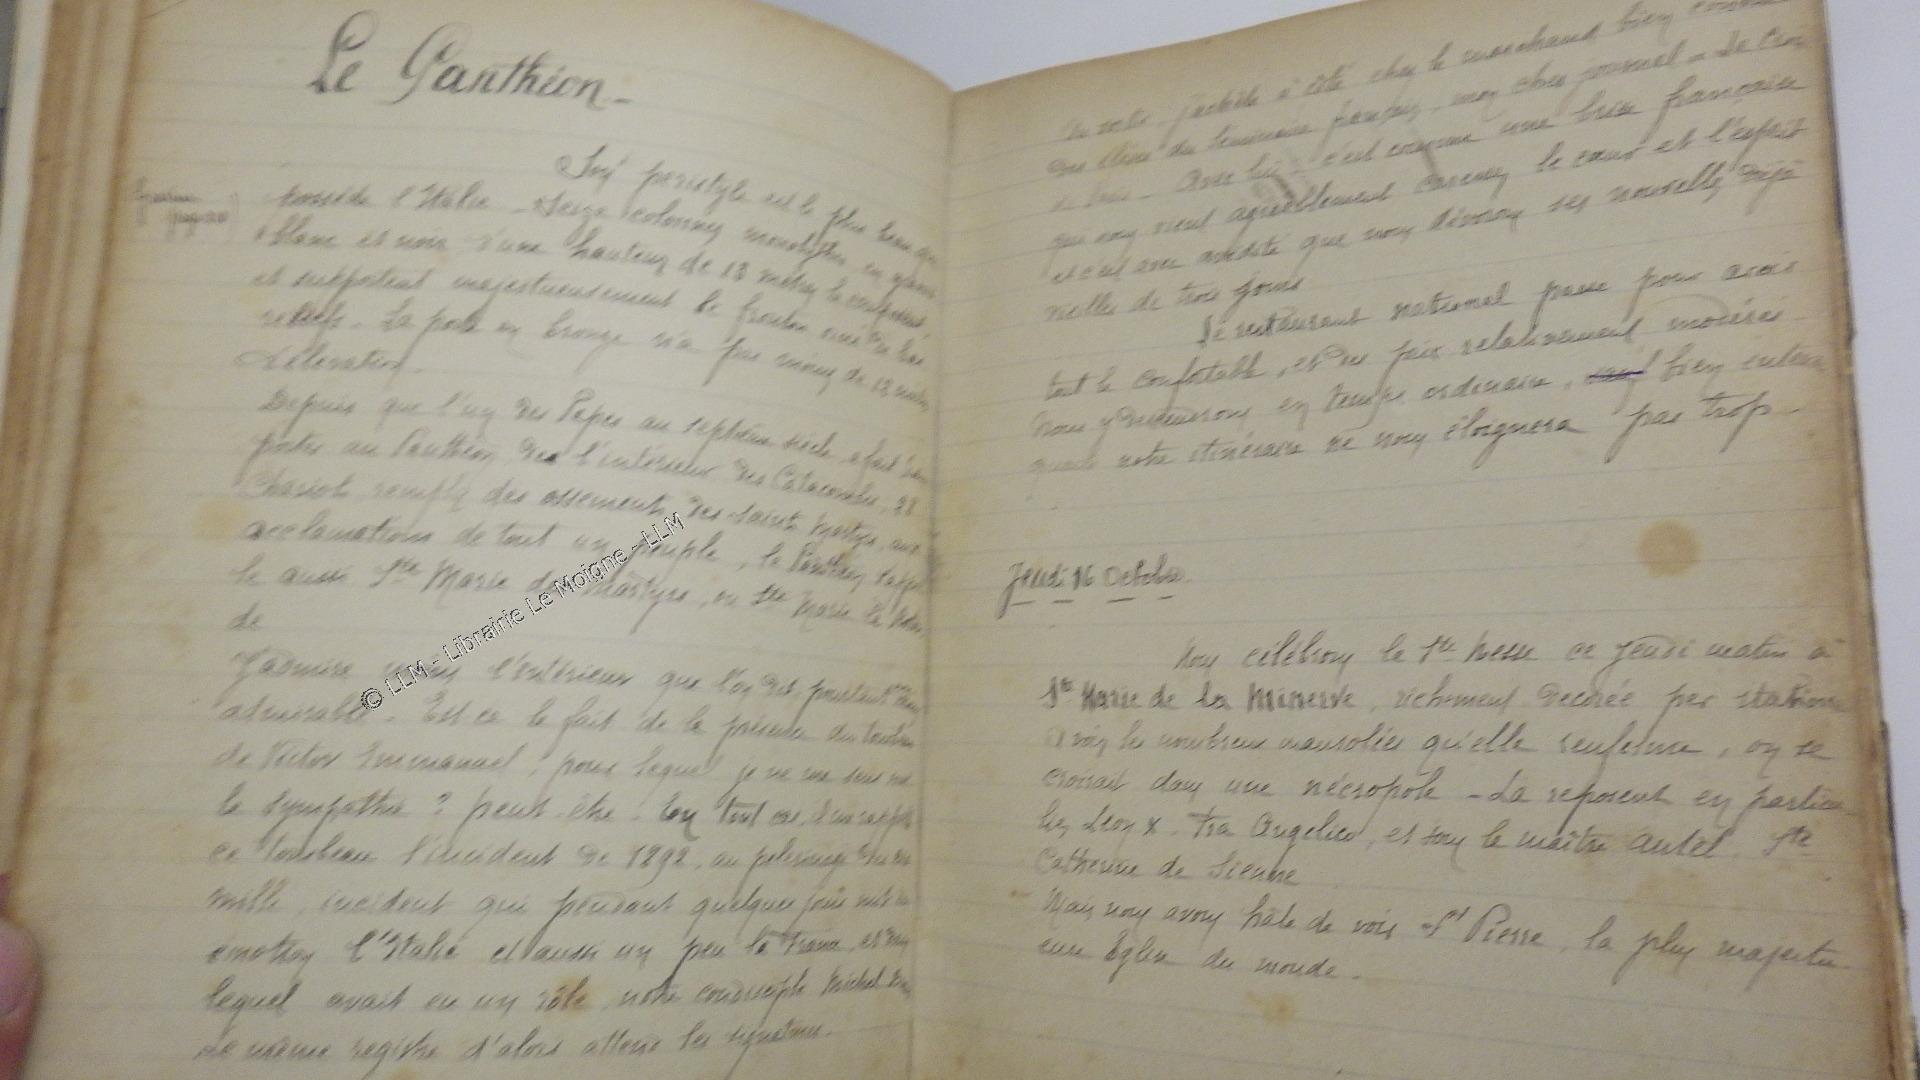 Le Panthéon -
Son péristyle est le plus beau que
possède l'Italie - Seize colonnes monolithes en granit
blanc et noir d'une hauteur de 13 mètres le composent,
et supportent majestueusement le fronton orné de bas
reliefs - La porte en bronze n'a pas moins de 12 mètres
d'élévation.
Depuis que l'un des Papes au septième siècle, a fait
porter au Panthéon de l'intérieur des Catacombes, 28
Chariots remplis des ossements des saints Martyrs, aux
acclamations de tout un peuple, le Panthéon s'appel
le aussi Ste Marie des Martyrs, ou Ste Marie la Ron
de
J'admire moins l'intérieur que l'on dit pourtant
admirable. Est ce le fait de la présence du tombeau
de Victor Emmanuel, pour lequel je ne me sens
le sympathie ? peut être. En tout cas, il me rappelle
ce tombeau l'incident de 1892, au pèlerinage des
mille, incident qui pendant quelques jours mit en
émotion l'Italie et aussi un peu la France, et dans
lequel avait eu un rôle notre condisciple Michel
Le même registre d'alors attend les signatures.
© LLM - Librairie Le Moigne - LLM
chez le marchand bien
du Séminaire français, mon cher journal - La Croix
Avec lui c'est comme une brise française
qui nous vient agréablement caresser le cœur et l'esprit
et c'est avec avidité que nous dévorons ses nouvelles déjà
vieilles de trois jours
Le restaurant national passe pour avoir
tout le confortable, et des prix relativement modérés
Nous y reviendrons en temps ordinaire, bien entendu
quand notre itinéraire ne nous éloignera pas trop -
Jeudi 16 Octobre
Nous célébrons la Ste Messe ce Jeudi matin à
Ste Marie de la Minerve, richement décorée
A voir les nombreux mausolées qu'elle renferme, on se
croirait dans une nécropole - Là reposent en particu
lier Léon X. Fra Angelico, et sous le maître autel Ste
Catherine de Sienne
Mais nous avons hâte de voir St Pierre, la plus majestu
euse Eglise du monde.